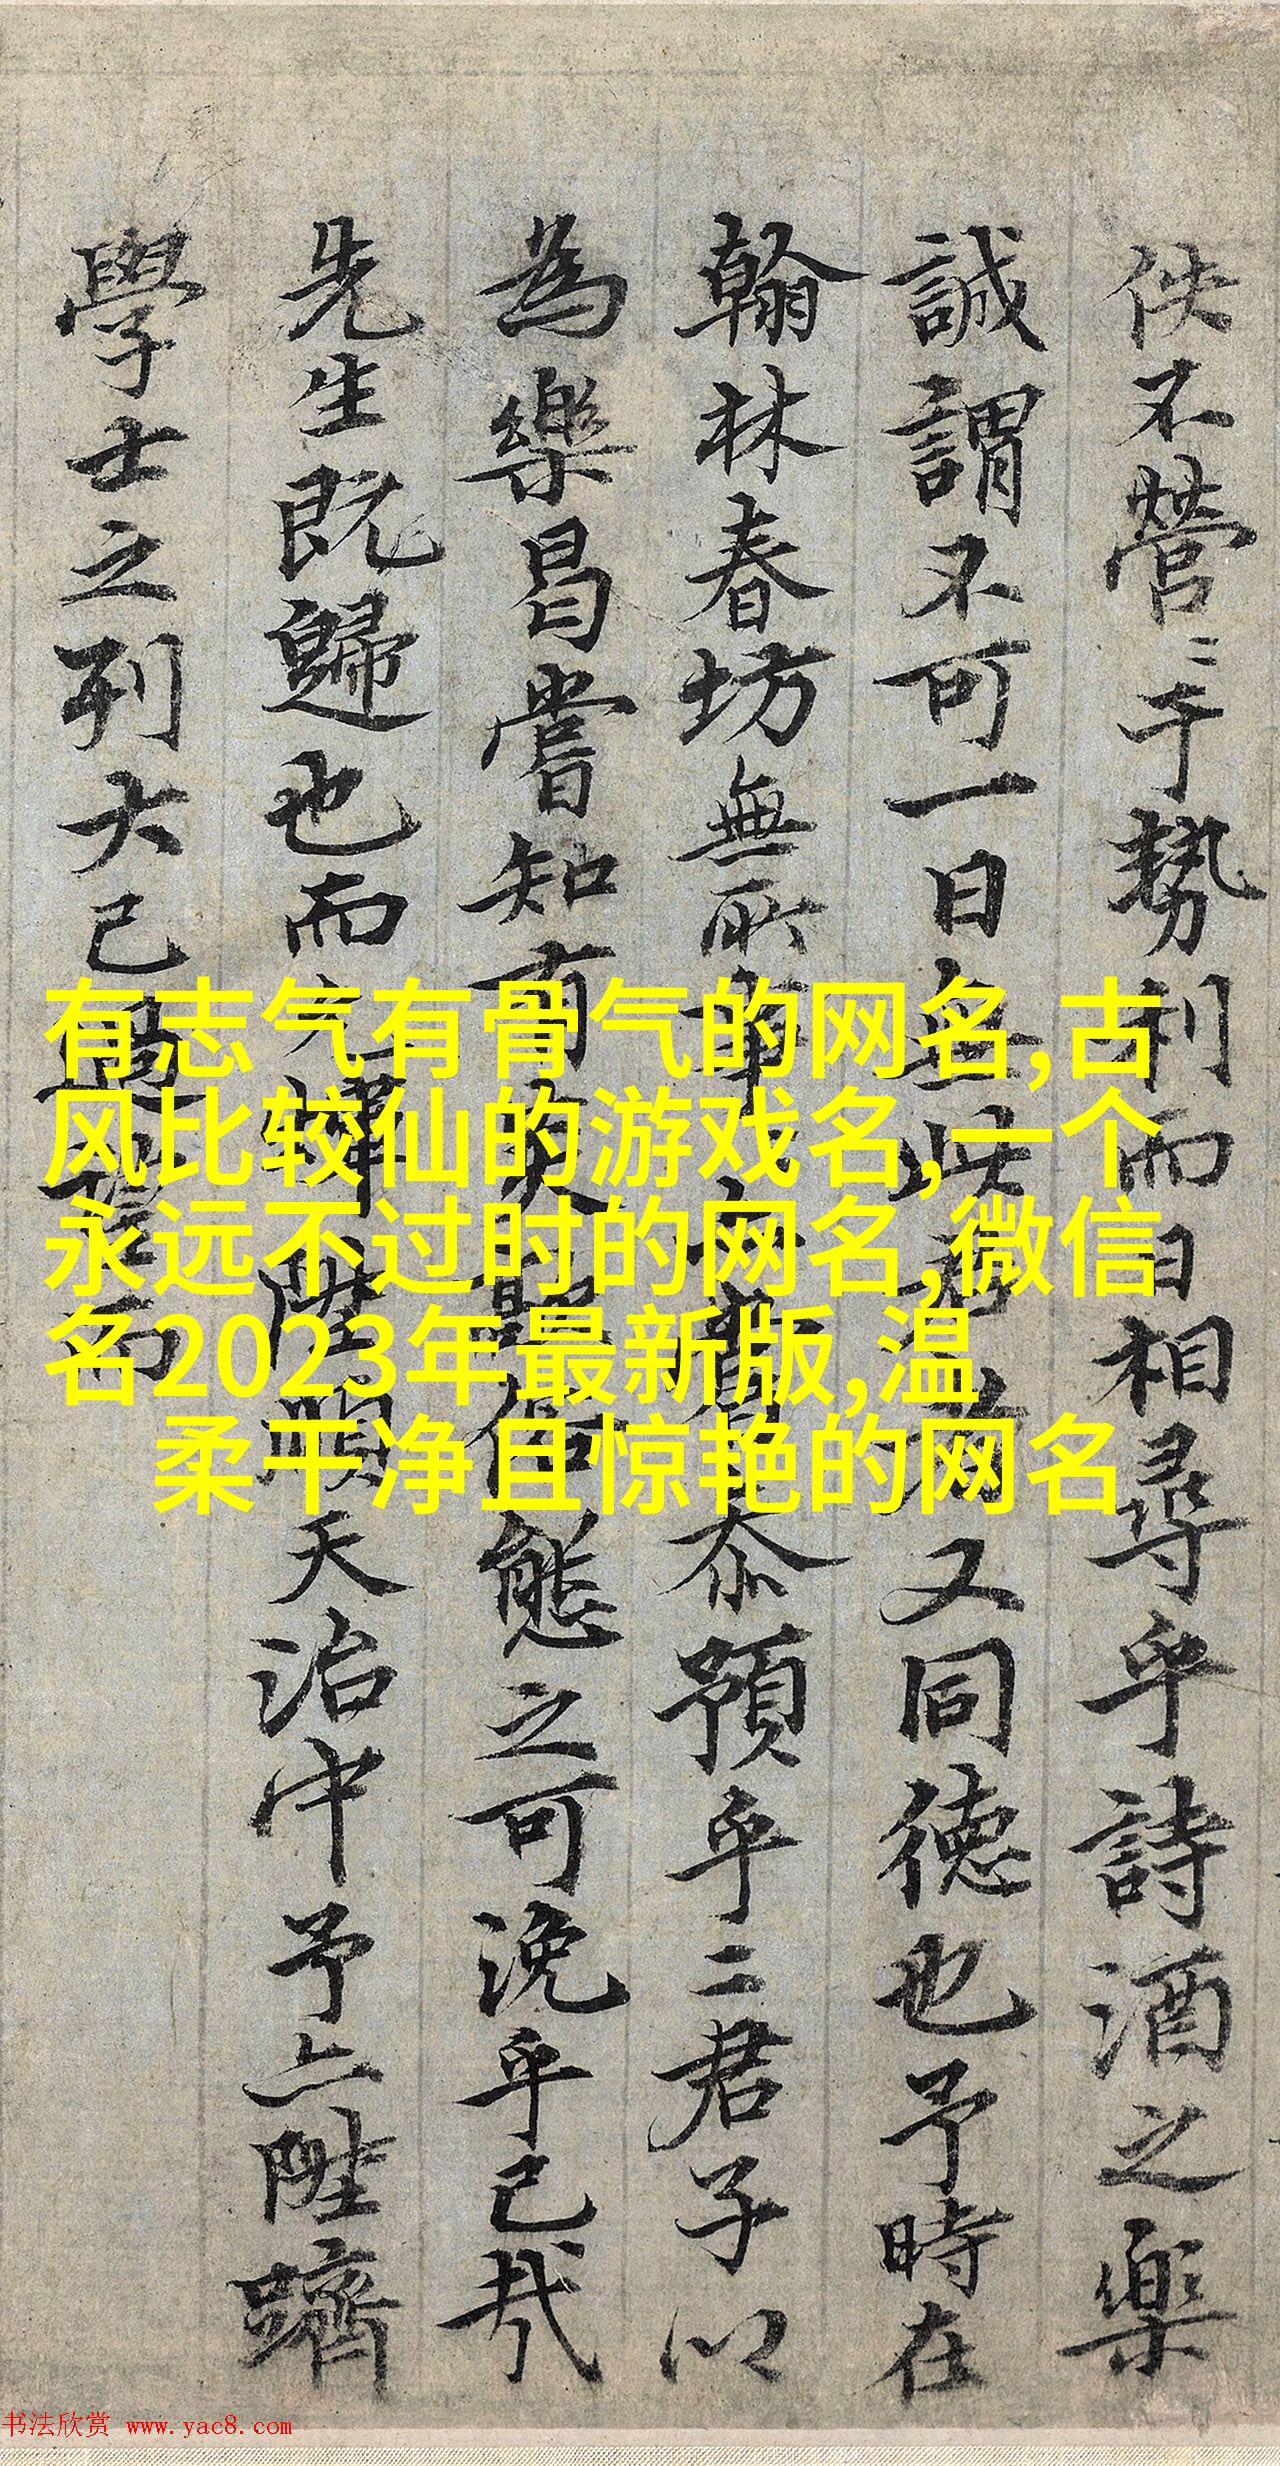 佚不營〻于勢利而日相尋乎詩酒之樂
誠謂不可一日無此者又同德也予時在
翰林春坊無所事忝預乎二君子以
為樂曷嘗知有炎俗態之可浼乎己哉
先生既歸也而陞順天治中予亦陞躋
學士之列大己過望而
有志气有骨气的网名,古
风比较仙的游戏名,一个
永远不过时的网名,微信
名2023年最新版,温
柔干净且惊艳的网名
书法欣赏 www.yac8.com